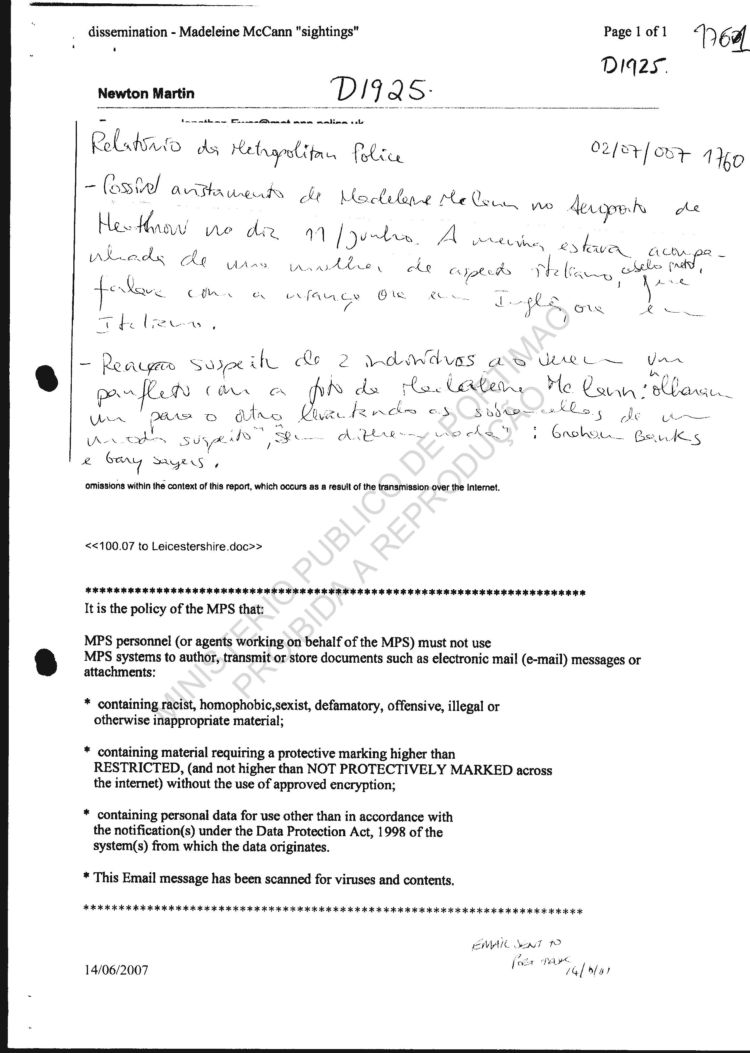 dissemination - Madeleine McCann "sightings"
Page 1 of 1
1761
D1925.
Newton Martin
D1925.
Relatório da Metropolitan Police
02/07/007 1760
- Possível avistamento de Madeleine McCann no Aeroporto de
Heathrow no dia 11/Junho. A menina estava acompa-
nhada de uma mulher de aspecto italiano, cabelo preto, que
falava com a criança ora em Inglês, ora em
Italiano.
- Reacção suspeita de 2 indivíduos ao verem um
panfleto com a foto de Madeleine McCann: "olharam
um para o outro levantando as sobrancelhas de um
modo suspeito", "sem dizerem nada": Graham Banks
e Gary Sayers.
omissions within the context of this report, which occurs as a result of the transmission over the Internet.
<<100.07 to Leicestershire.doc>>
**********************************************************************
It is the policy of the MPS that:
MPS personnel (or agents working on behalf of the MPS) must not use
MPS systems to author, transmit or store documents such as electronic mail (e-mail) messages or
attachments:
* containing racist, homophobic,sexist, defamatory, offensive, illegal or
otherwise inappropriate material;
* containing material requiring a protective marking higher than
RESTRICTED, (and not higher than NOT PROTECTIVELY MARKED across
the internet) without the use of approved encryption;
* containing personal data for use other than in accordance with
the notification(s) under the Data Protection Act, 1998 of the
system(s) from which the data originates.
* This Email message has been scanned for viruses and contents.
**********************************************************************
EMAIL SENT TO
14/06/2007
MINISTERIO PUBLICO DE PORTIMAO
PROIBIDA A REPRODUÇÃO